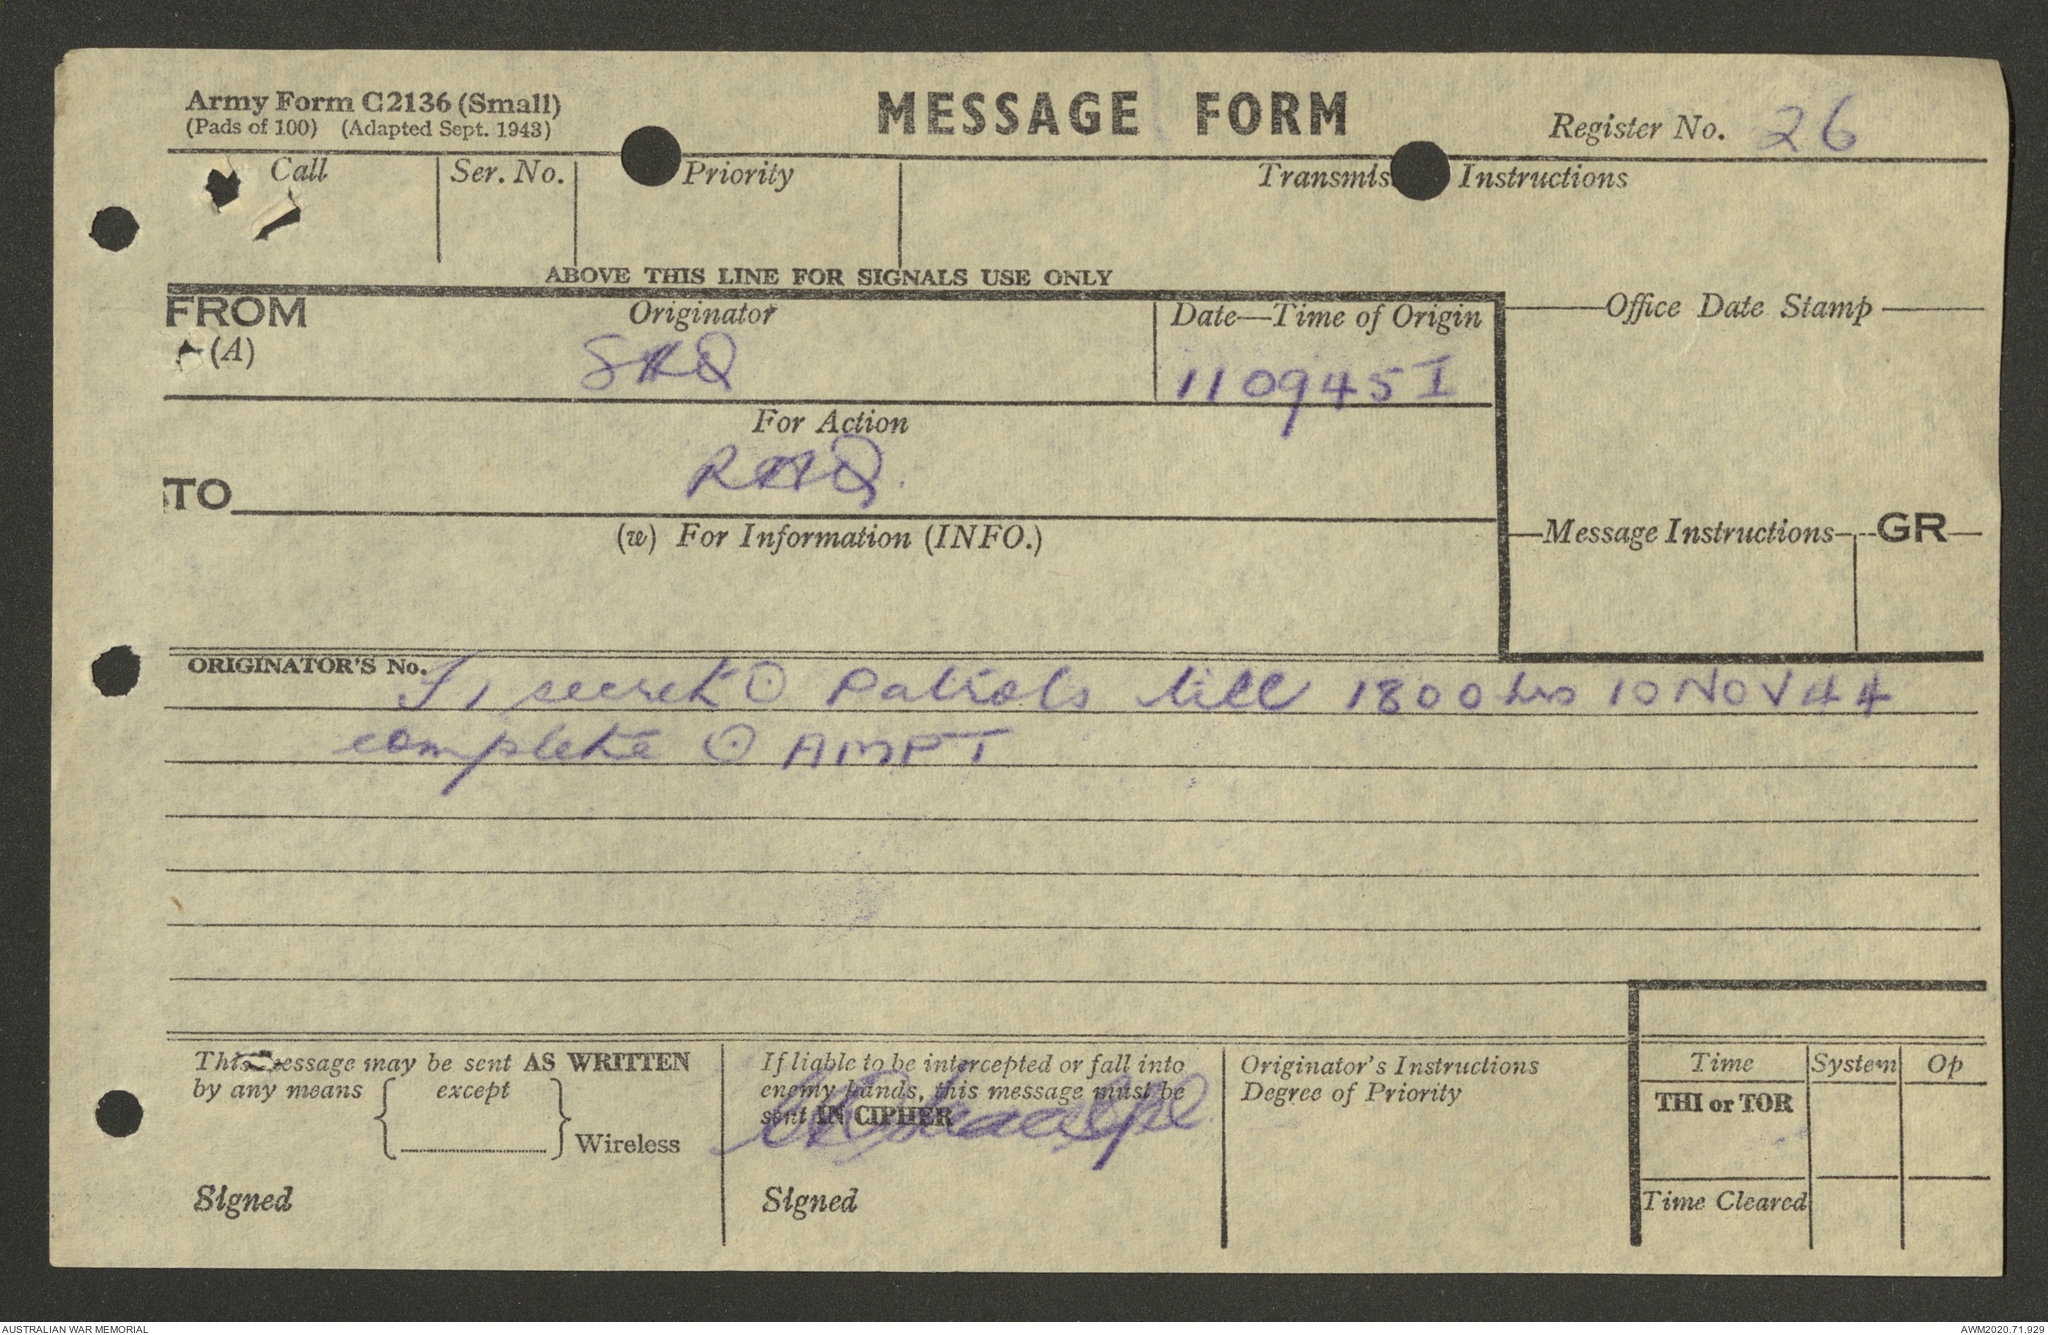 Army Form C2136 (Small)
(Pads of 100) (Adapted Sept. 1943)
MESSAGE FORM
Register No. 26
Call Ser. No. Priority Transmis Instructions
ABOVE THIS LINE FOR SIGNALS USE ONLY
FROM
(A)
Originator
SHQ
Date—Time of Origin
110945 I
Office Date Stamp
For Action
RHQ.
TO
(w) For Information (INFO.)
Message Instructions GR
ORIGINATOR'S No.
secret ⊙ Patrols till 1800 hrs 10 NOV 44
complete ⊙ AMPT
This message may be sent AS WRITTEN
by any means except
Wireless
Signed
If liable to be intercepted or fall into
enemy hands, this message must be
sent IN CIPHER
Signed
Originator's Instructions
Degree of Priority
Time System Op
THI or TOR
Time Cleared
AUSTRALIAN WAR MEMORIAL
AWM2020.71.929